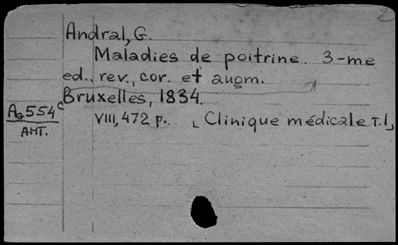 Andral, G.
Maladies de poitrine. 3-me
ed., rev., cor. et augm.
Bruxelles, 1834.
VIII, 472 p. (Clinique médicale T.1,
Aa554c
АНТ.